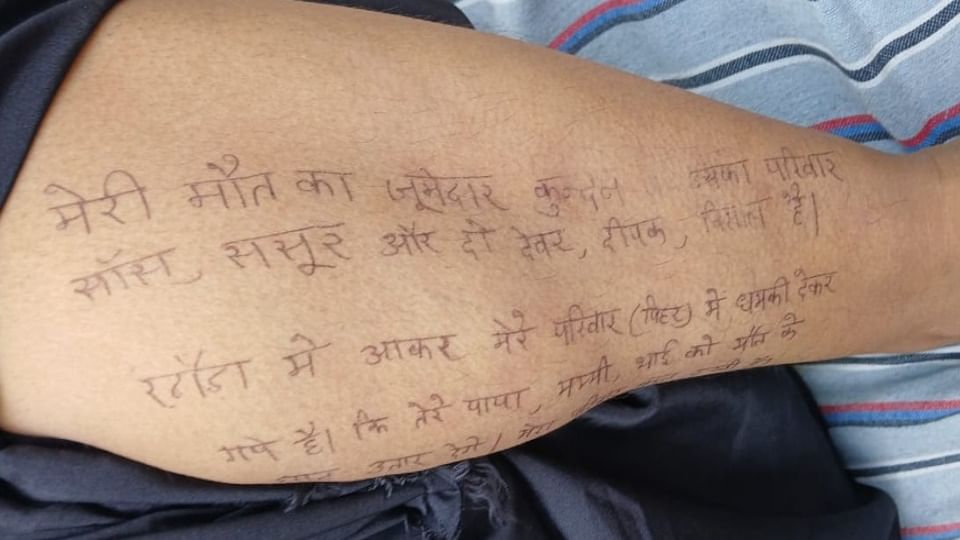 मेरी मौत का जूमेदार कुन्दन व उसका परिवार
सॉस, ससूर और दो देवर, दीपक, विसाल है।
रटौडा मे आकर मेरे परिवार (पिहर) में धमकी देकर
गये है। कि तेरे पापा, मम्मी, भाई को मौत के
उतार देगे। मेरा